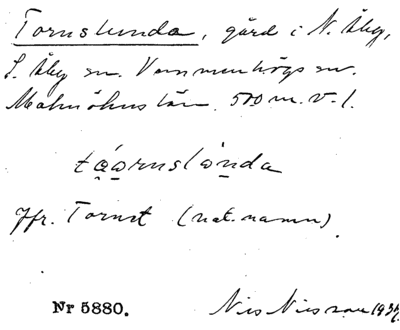 Tornslunda, gård i N. Åby,
S. Åby sn. Vemmenhögs
Malmöhus län. 500 m. v. l.
táo̯rnslònda
Jfr. Tornst (nat. namn).
Nr 5880. Nils Nilsson